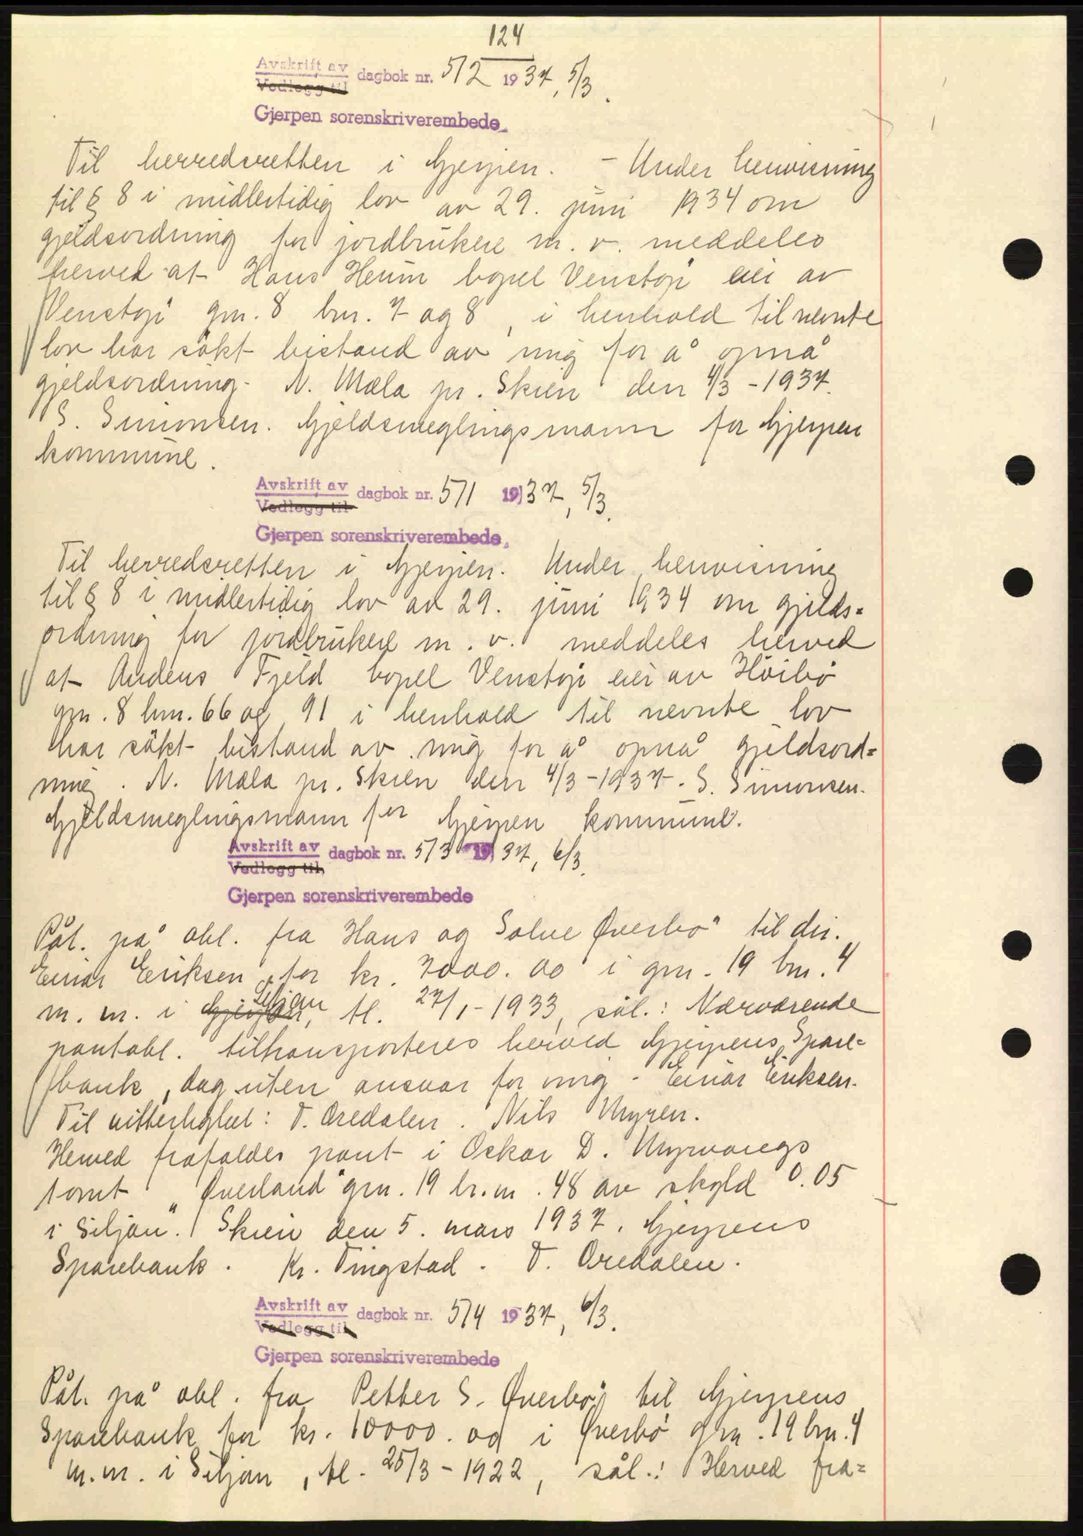 124
Avskrift av
Vedlegg til dagbok nr. 512 1937, 5/3.
Gjerpen sorenskriverembede.
Til herredsretten i Gjerpen. – Under henvisning
til § 8 i midlertidig lov av 29. juni 1934 om
gjeldsordning for jordbrukere m. v. meddeles
herved at Hans Heum bopel Venstöp eier av
Venstöp gnr. 8 bnr. 7 og 8, i henhold til nevnte
lov har søkt bistand av mig for å opnå
gjeldsordning. N. Mæla pr. Skien den 4/3 – 1937.
S. Simonsen. Gjeldsmeglingsmann for Gjerpen
kommune.
Avskrift av
Vedlegg til dagbok nr. 511 1937, 5/3.
Gjerpen sorenskriverembede.
Til herredsretten i Gjerpen. Under henvisning
til § 8 i midlertidig lov av 29. juni 1934 om gjelds=
ordning for jordbrukere m. v. meddeles herved
at Anders Fjeld bopel Venstöp eier av Höibö
gnr. 8 bnr. 66 og 91 i henhold til nevnte lov
har søkt bistand av mig for å opnå gjeldsord=
ning. N. Mæla pr. Skien den 4/3 – 1937. S. Simonsen.
Gjeldsmeglingsmann for Gjerpen kommune.
Avskrift av
Vedlegg til dagbok nr. 513 1937, 6/3.
Gjerpen sorenskriverembede
Påt. på obl. fra Hans og Solve Øverbö til dir.
Einar Eriksen for kr. 7000.00 i gnr. 19 bnr. 4
m. m. i Gjerpen Siljan, tl. 27/1 – 1933, sål.: Nærværende
pantobl. tiltransporteres herved Gjerpens Spare=
bank, dog uten ansvar for mig. Einar Eriksen.
Til vitterlighet: T. Oredalen. Nils Myren.
Herved frafaldes pant i Oskar D. Myrvangs
tomt „Øverland" gnr. 19 br.nr. 48 av skyld 0.05
i Siljan. Skien den 5. mars 1937. Gjerpens
Sparebank. Kr. Tingstad. T. Oredalen.
Avskrift av
Vedlegg til dagbok nr. 514 1937, 6/3.
Gjerpen sorenskriverembede
Påt. på obl. fra Petter S. Øverbö til Gjerpens
Sparebank for kr. 10000.00 i Øverbö gnr. 19 bnr. 4
m.m. i Siljan, tl. 25/3 – 1922, sål.: Herved fra=